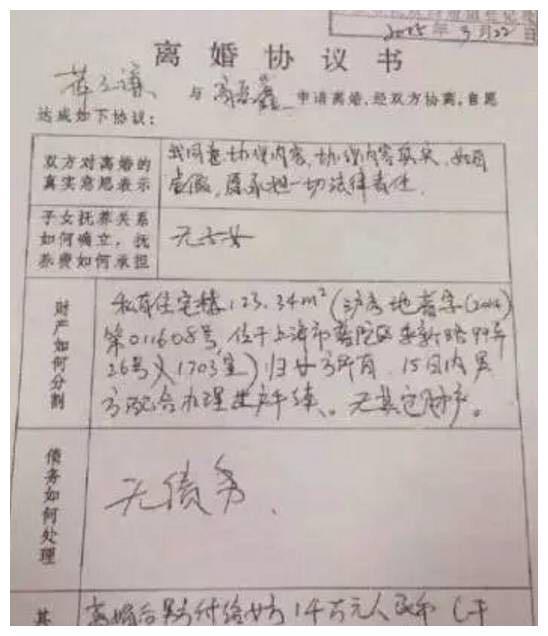 2015年3月22日
离婚协议书
薛之谦 与 高磊鑫 申请离婚,经双方协商,自愿
达成如下协议:
双方对离婚的
真实意思表示
我同意协议内容,协议内容真实,如有
虚假,愿承担一切法律责任.
子女抚养关系
如何确立,抚
养费如何承担
无子女
财产如何分割
私有住宅楼123.34m²(沪房地普字(2014)
第011608号,位于上海市普陀区 新路99弄
26号 1703室)归女方所有.15日内男
方配合办理过户手续。无其它财产。
债务如何处理
无债务.
其
离婚后男方付给女方1千万元人民币(于